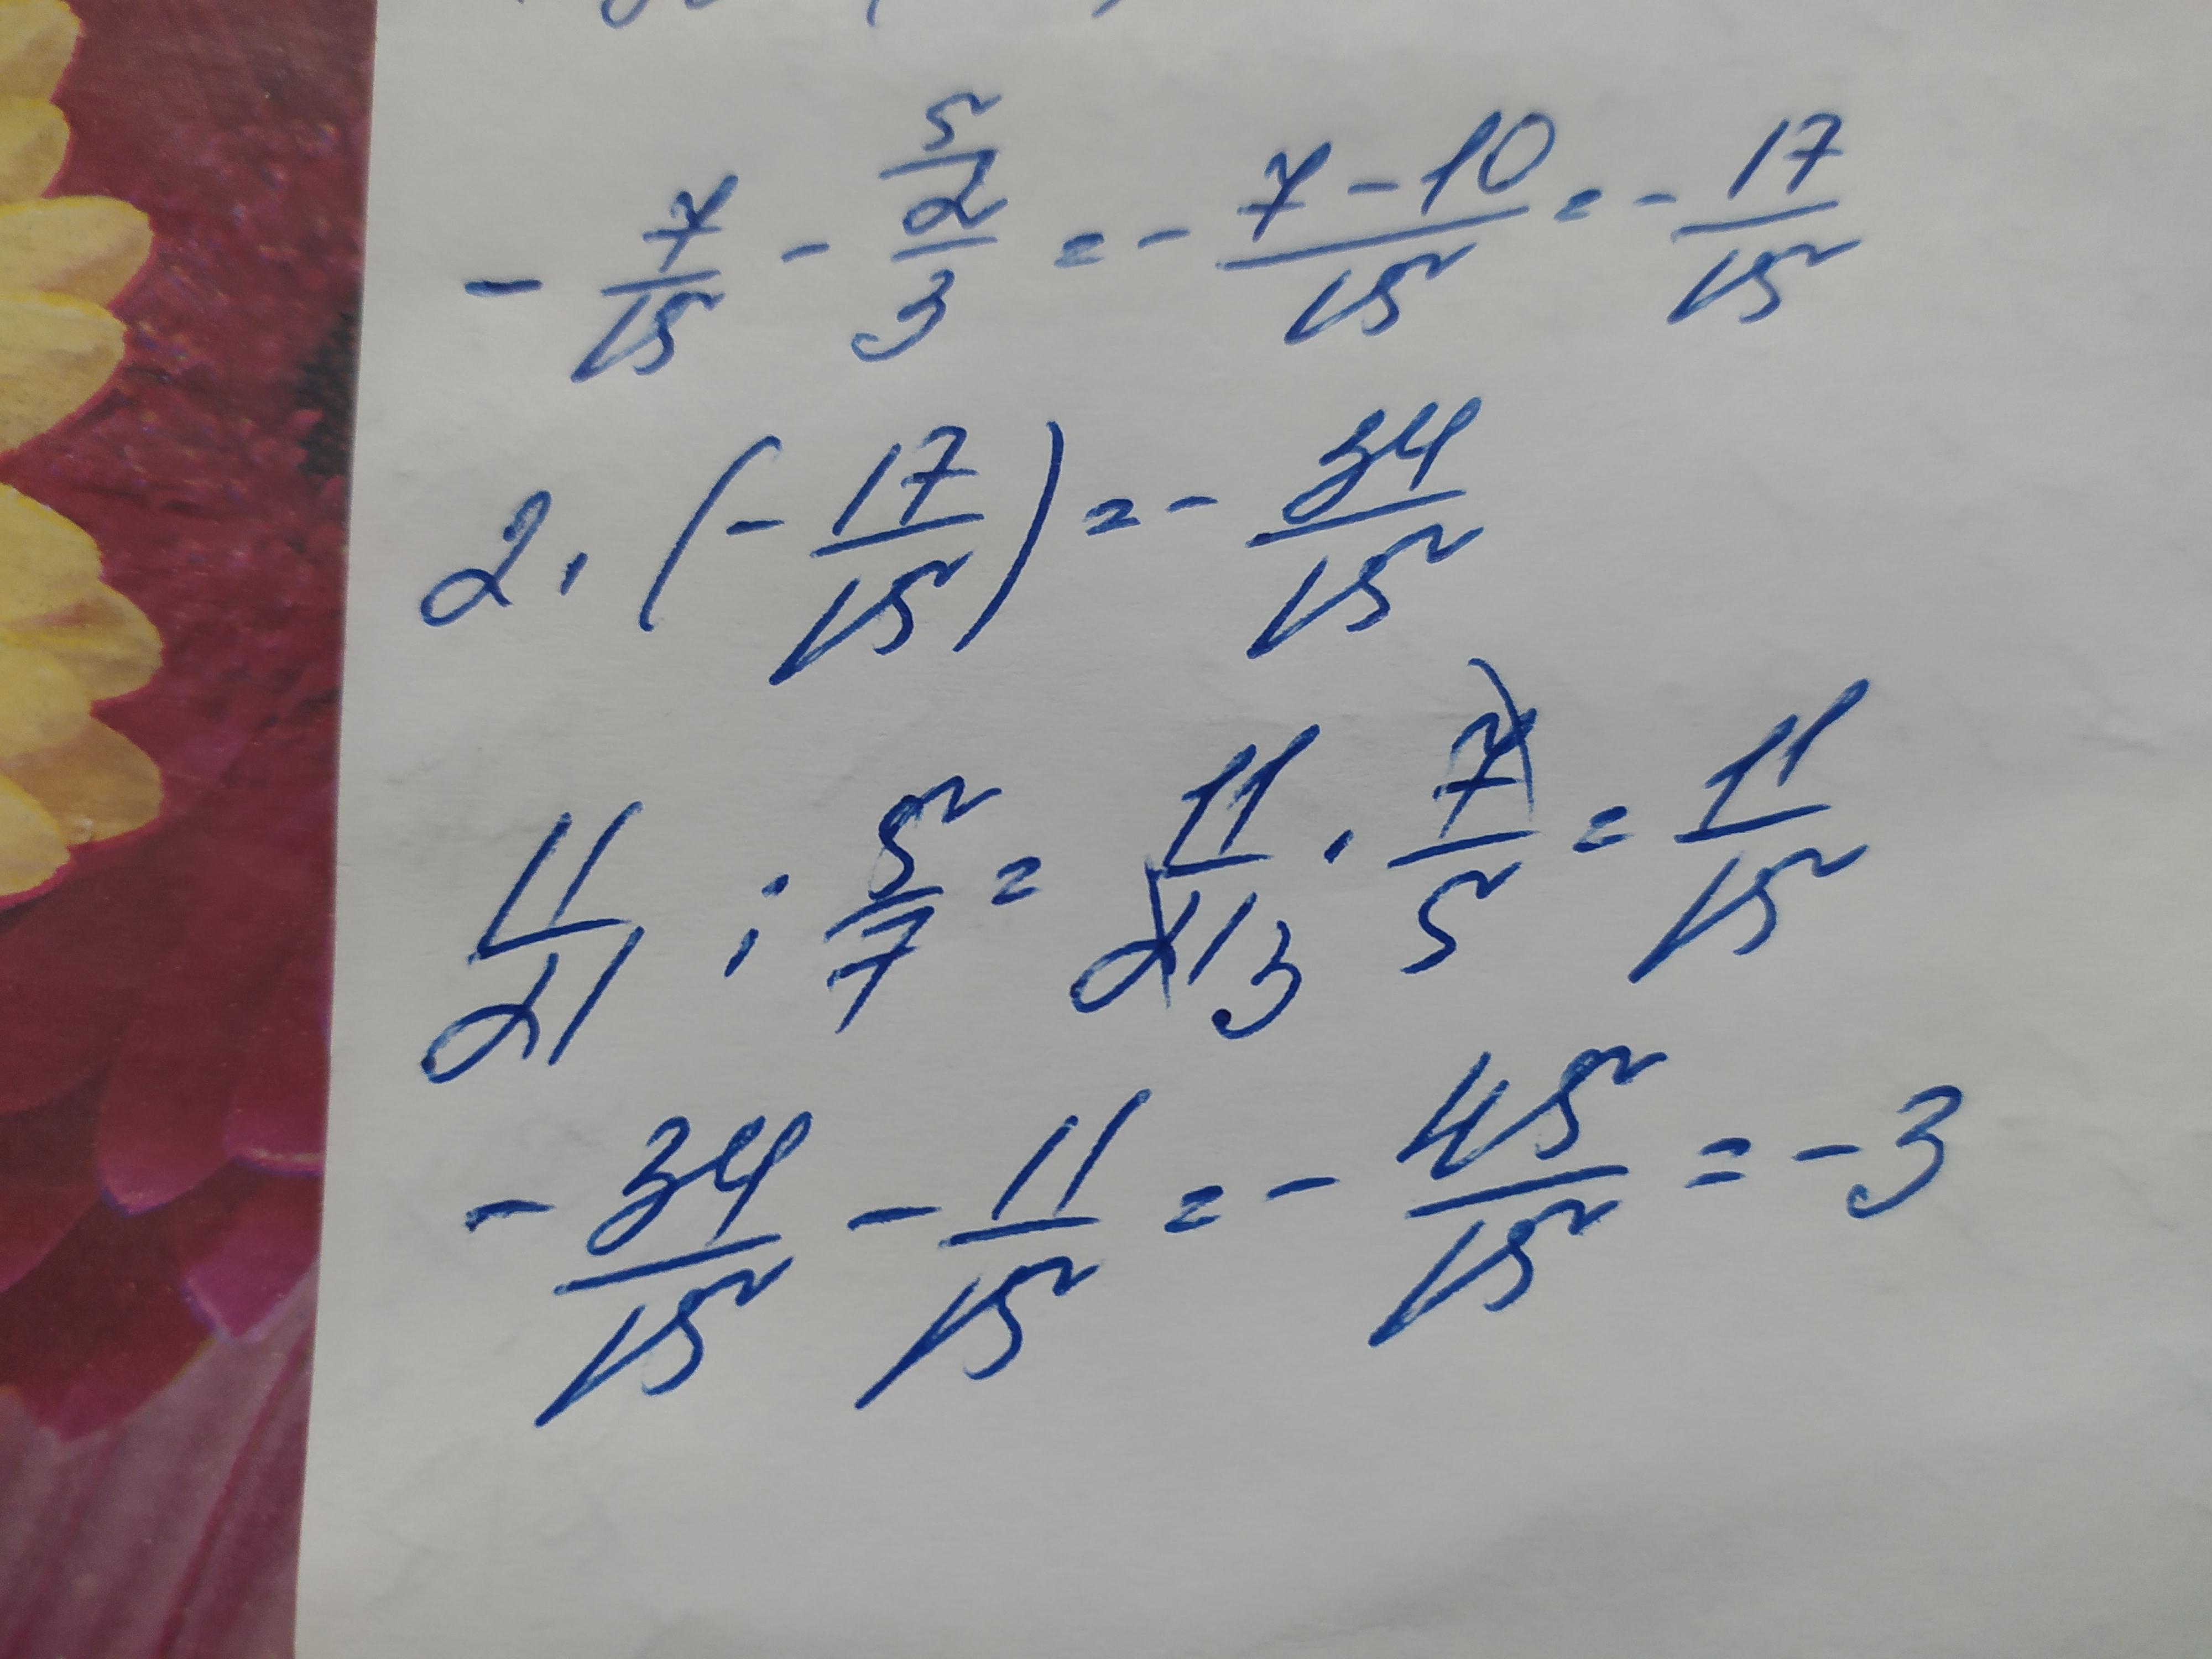 - 7/15 - 5/2/3 = - 7 - 10/15 = - 17/15
2 · (- 17/15) = - 34/15
11/21 : 5/7 = 11/21 3 · 7/5 = 11/15
- 34/15 - 11/15 = - 45/15 = - 3